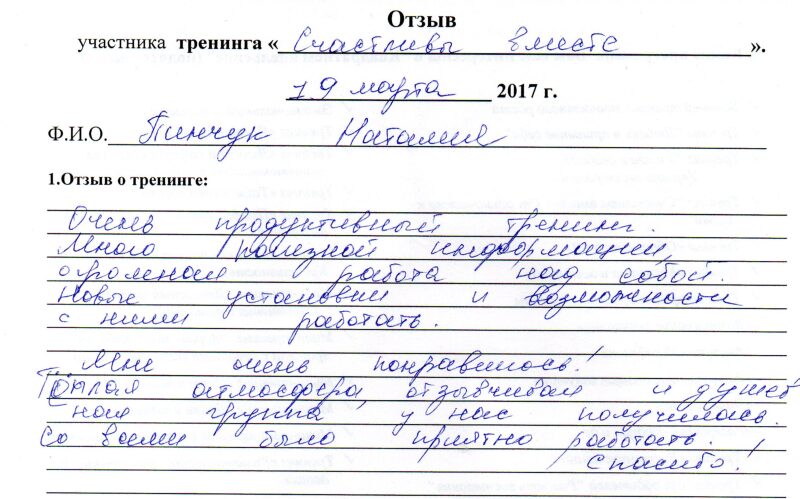 Отзыв
участника тренинга «Счастливы вместе».
19 марта 2017 г.
Ф.И.О. Пинчук Наталия
1.Отзыв о тренинге:
Очень продуктивный тренинг.
Много полезной информации,
огромная работа над собой.
Новые установки и возможности
с ними работать.
Мне очень понравилось!
Тёплая атмосфера, отзывчивая и душев
ная группа у нас получилась.
Со всеми было приятно работать.
Спасибо!